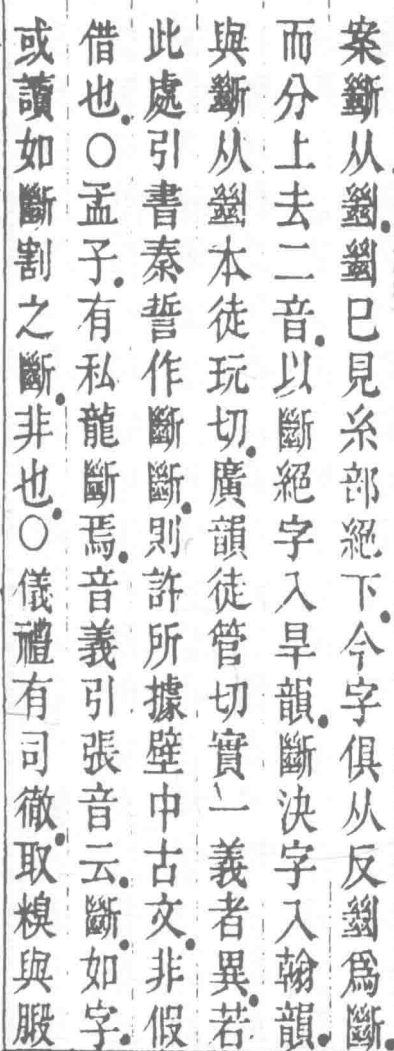 案斷从𢇍。𢇍巳見糸部絕下。今字俱从反𢇍爲斷。
而分上去二音。以斷絕字入旱韻。斷決字入翰韻。
與斷从𢇍本徒玩切。廣韻徒管切實一義者異。若
此處引書秦誓作斷斷。則許所據壁中古文。非假
借也。○孟子。有私龍斷焉。音義引張音云。斷。如字。
或讀如斷割之斷。非也。○儀禮有司徹。取糗與腶